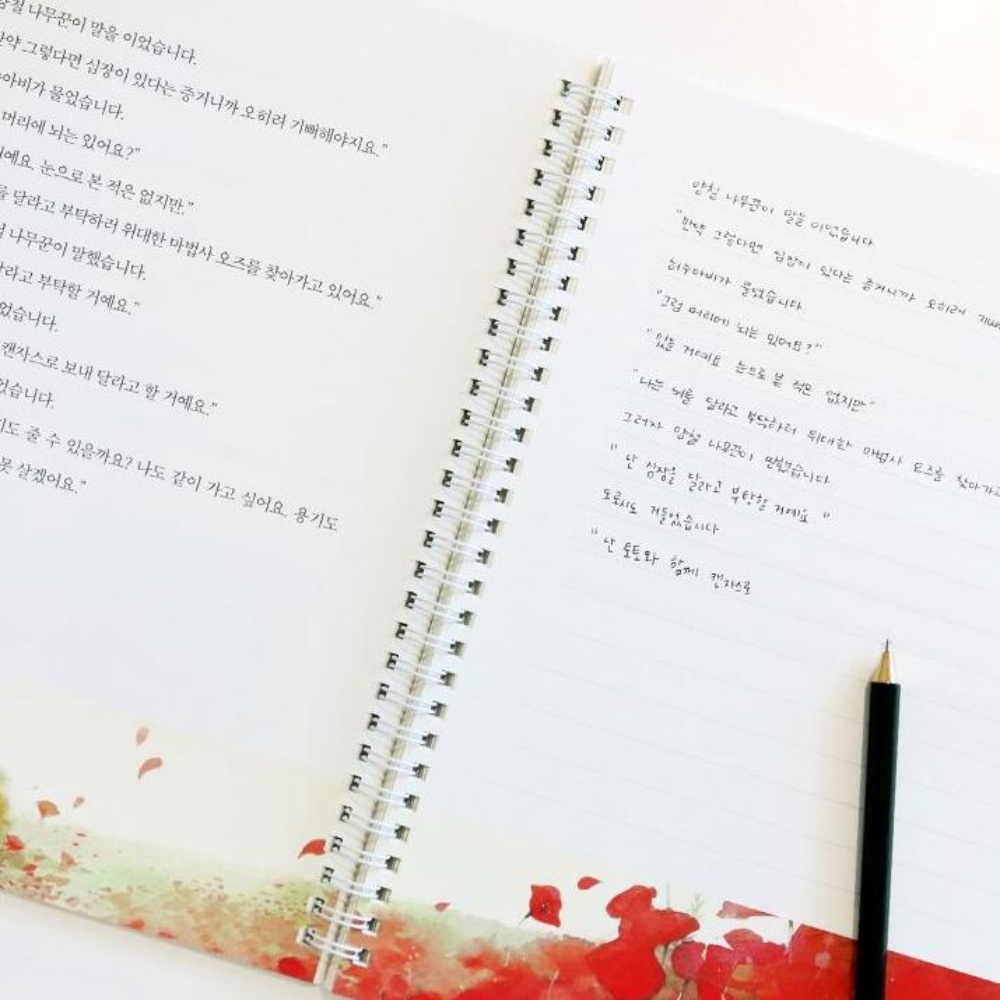 양철 나무꾼이 말을 이었습니다.
만약 그렇다면 심장이 있다는 증거니까 오히려 기뻐해야지요."
수아비가 물었습니다.
머리에 뇌는 있어요?"
거예요. 눈으로 본 적은 없지만."
를 달라고 부탁하러 위대한 마법사 오즈를 찾아가고 있어요."
철 나무꾼이 말했습니다.
달라고 부탁할 거예요."
었습니다.
캔자스로 보내 달라고 할 거예요."
었습니다.
기도 줄 수 있을까요? 나도 같이 가고 싶어요. 용기도
못 살겠어요."
양철 나무꾼이 말을 이었습니다
"만약 그렇다면 심장이 있다는 증거니까 오히려 기뻐
허수아비가 물었습니다
"그럼 머리에 뇌는 있어요?"
"있는 거예요 눈으로 본 적은 없지만"
"나는 뇌를 달라고 부탁하러 위대한 마법사 오즈를 찾아가고
그러자 양철 나무꾼이 말했습니다
"난 심장을 달라고 부탁할 거예요"
도로시도 거들었습니다
"난 토토와 함께 캔자스로